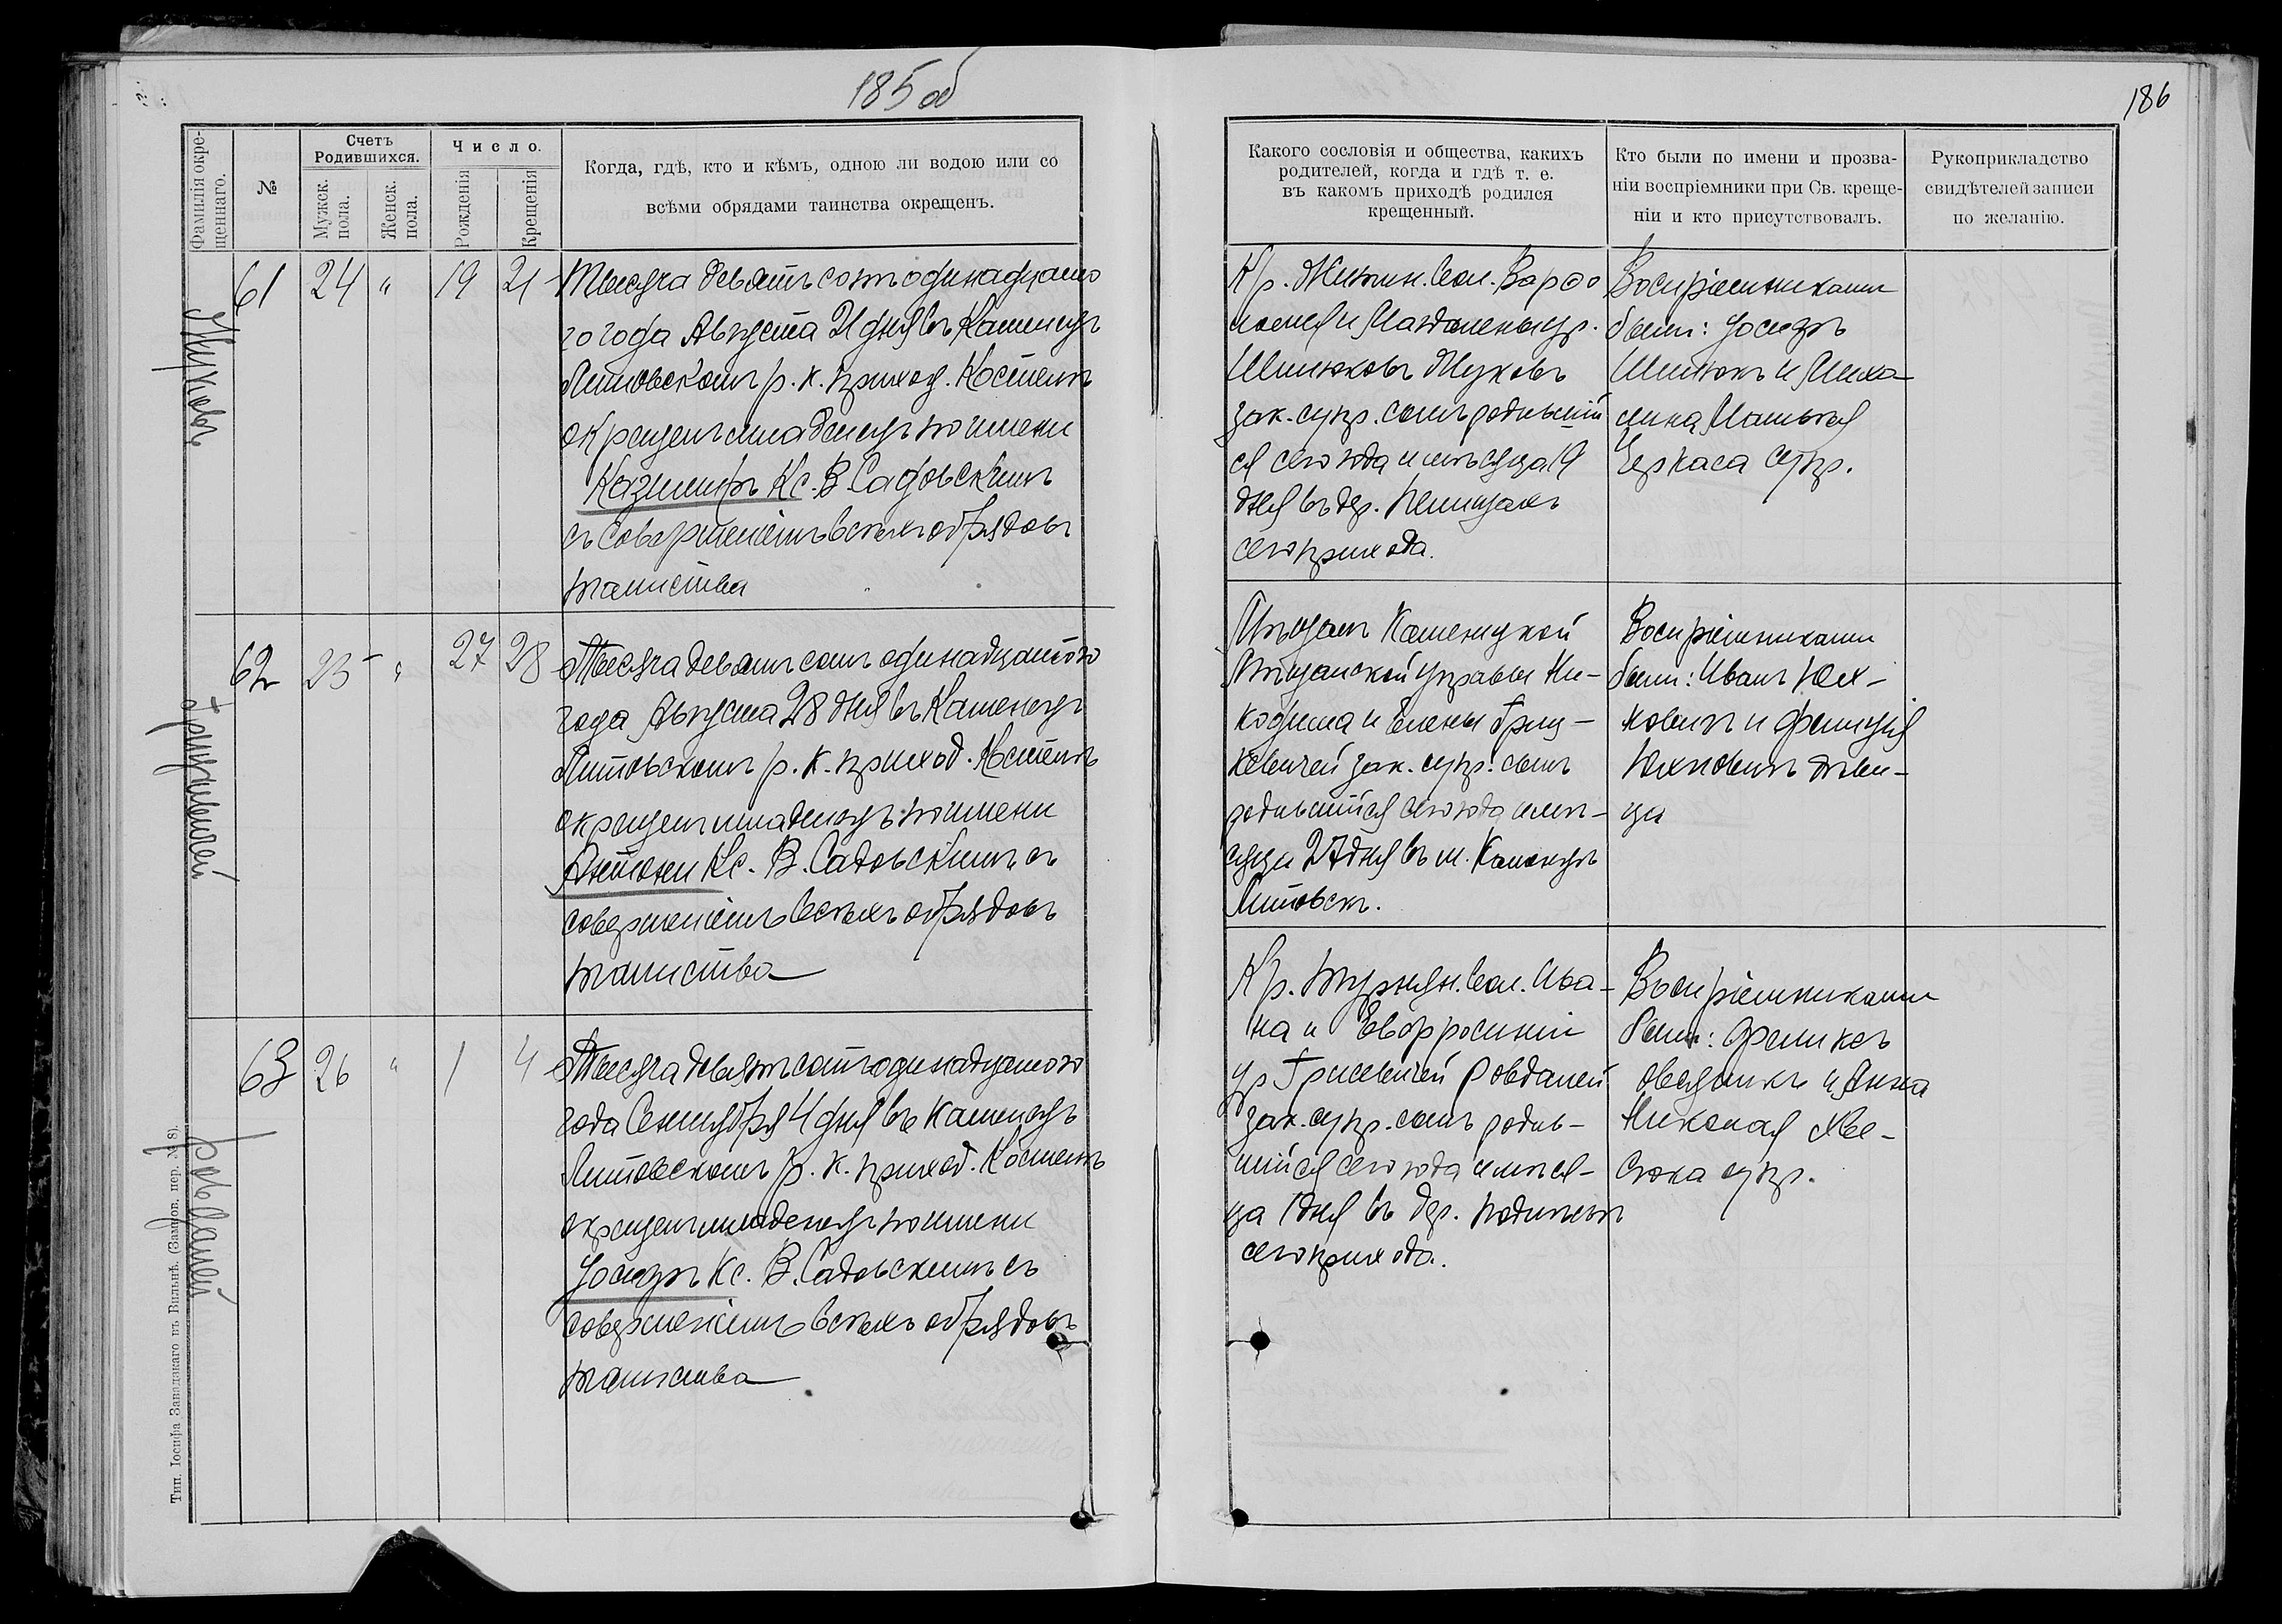 185 об
Фамилія окре-
щеннаго.
№
Счетъ
Родившихся.
Мужск.
пола.
Женск.
пола.
Число.
Рожденія
Крещенія
Когда, гдѣ, кто и кѣмъ, одною ли водою или со
всѣми обрядами таинства окрещенъ.
Жуковъ
61 24 " 19 21
Тысяча девятьсотъ одинадцато
го года Августа 21 дня въ Каменцѣ
Литовскомъ р. к. приход. Костелѣ
окрещенъ младенецъ по имени
Казимиръ Кс. В. Садовскимъ
съ совершеніемъ всѣхъ обрядовъ
таинства
Грицкевичей
62 25 " 27 28
Тысяча девятьсотъ одинадцатого
года Августа 28 дня въ Каменцѣ
Литовскомъ р. к. приход. Костелѣ
окрещенъ младенецъ по имени
Антони Кс. В. Садовскимъ съ
совершеніемъ всѣхъ обрядовъ
таинства
Ровдалей
63 26 " 1 4
Тысяча девятьсотъ одинадцатого
года Сентября 4 дня въ Каменцѣ
Литовскомъ р. к. приход. Костелѣ
окрещенъ младенецъ по имени
Іосифъ Кс. В. Садовскимъ съ
совершеніемъ всѣхъ обрядовъ
таинства
Тип. Іосифа Завадзкаго въ Вильнѣ. (Закон. пер. № 8).
186
Какого сословія и общества, какихъ
родителей, когда и гдѣ т. е.
въ какомъ приходѣ родился
крещенный.
Кто были по имени и прозва-
ніи воспріемники при Св. креще-
ніи и кто присутствовалъ.
Рукоприкладство
свидѣтелей записи
по желанію.
Кр. Жит. Вол. Варѳо
ломея и Магдалены ур.
Жуковъ
зак. супр. сынъ родившій
ся сего года и мѣсяца 19
дня въ дер.
сего прихода.
Воспріемниками
были: Іосифъ
и Миха
лина
Черкаса супр.
Мѣщанъ Каменецкой
Мѣщанской Управы Ни-
кодима и Елены Гриц-
кевичей зак. супр. сынъ
родившійся сего года и мѣ-
сяца 27 дня въ м. Каменцѣ
Литовскъ.
Воспріемниками
были: Иванъ Юх-
новичъ и Фелиція
Юхновичъ дѣви-
ца
Кр. Турнян. Вол. Ива-
на и Евфросиніи
ур Ровдалей
зак. супр. сынъ родив-
шійся сего года и мѣся-
ца 1 дня въ дер.
сего прихода.
Воспріемниками
были: Феликсъ
и Анна
Николая
супр.